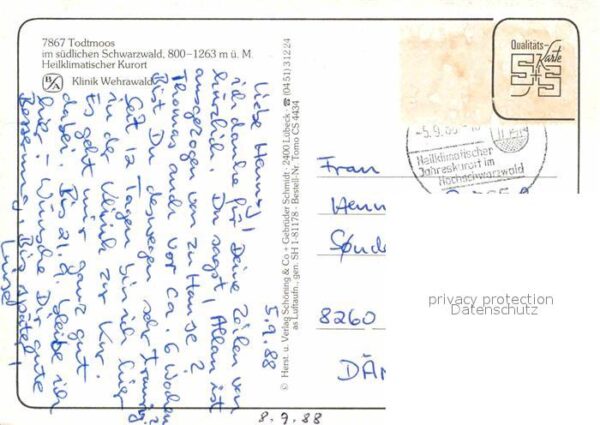 7867 Todtmoos
im südlichen Schwarzwald, 800–1263 m ü. M.
Heilklimatischer Kurort
Klinik Wehrawald
5.9.88
Liebe Henny!
ich danke für Deine Zeilen von
kürzlich. Du sagst, Allan ist
ausgezogen von zu Hause?
Thomas auch vor ca. 6 Wochen
Bist Du deswegen sehr traurig?
Seit 12 Tagen bin ich hier
in der Klinik zur Kur.
Es geht mir ganz gut
dabei. Bis 21.9. bleibe ich
hier. Wünsche Dir gute
Besserung. Bis später!
© Herst. u. Verlag Schöning & Co + Gebrüder Schmidt · 2400 Lübeck ☎ (04 51) 3 12 24
as Luftaufn., gen. SH 1-81178 · Bestell-Nr. Tomo CS 4434
Qualitäts-
Karte
S+S
-5.9.88
Heilklimatischer
Jahreskurort im
Hochschwarzwald
Frau
Henn
Sønde
8260
DÄN
privacy protection
Datenschutz
8.9.88